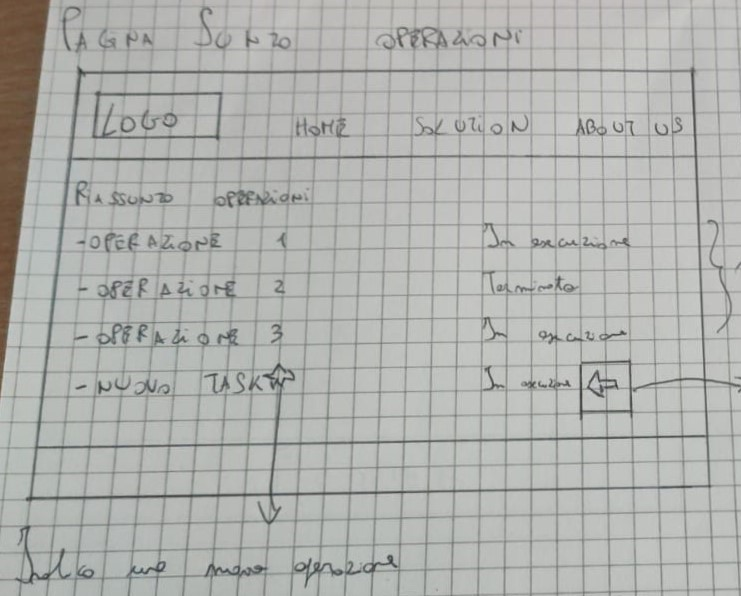 PAGINA SUNZO OPERAZIONI
LOGO HOME SOLUTION ABOUT US
RIASSUNZO OPERAZIONI
-OPERAZIONE 1 In esecuzione
- OPERAZIONE 2 Terminata
- OPERAZIONE 3 In esecuzione
- NUOVO TASK In esecuzione
una nuova operazione